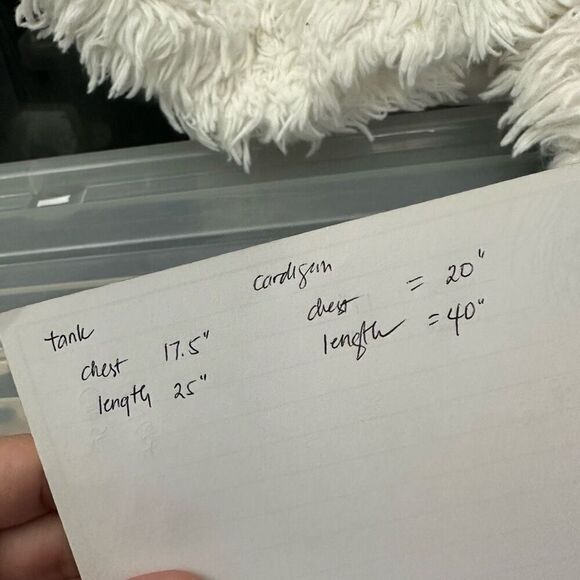 tank
chest 17.5"
length 25"
cardigan
chest = 20"
length = 40"